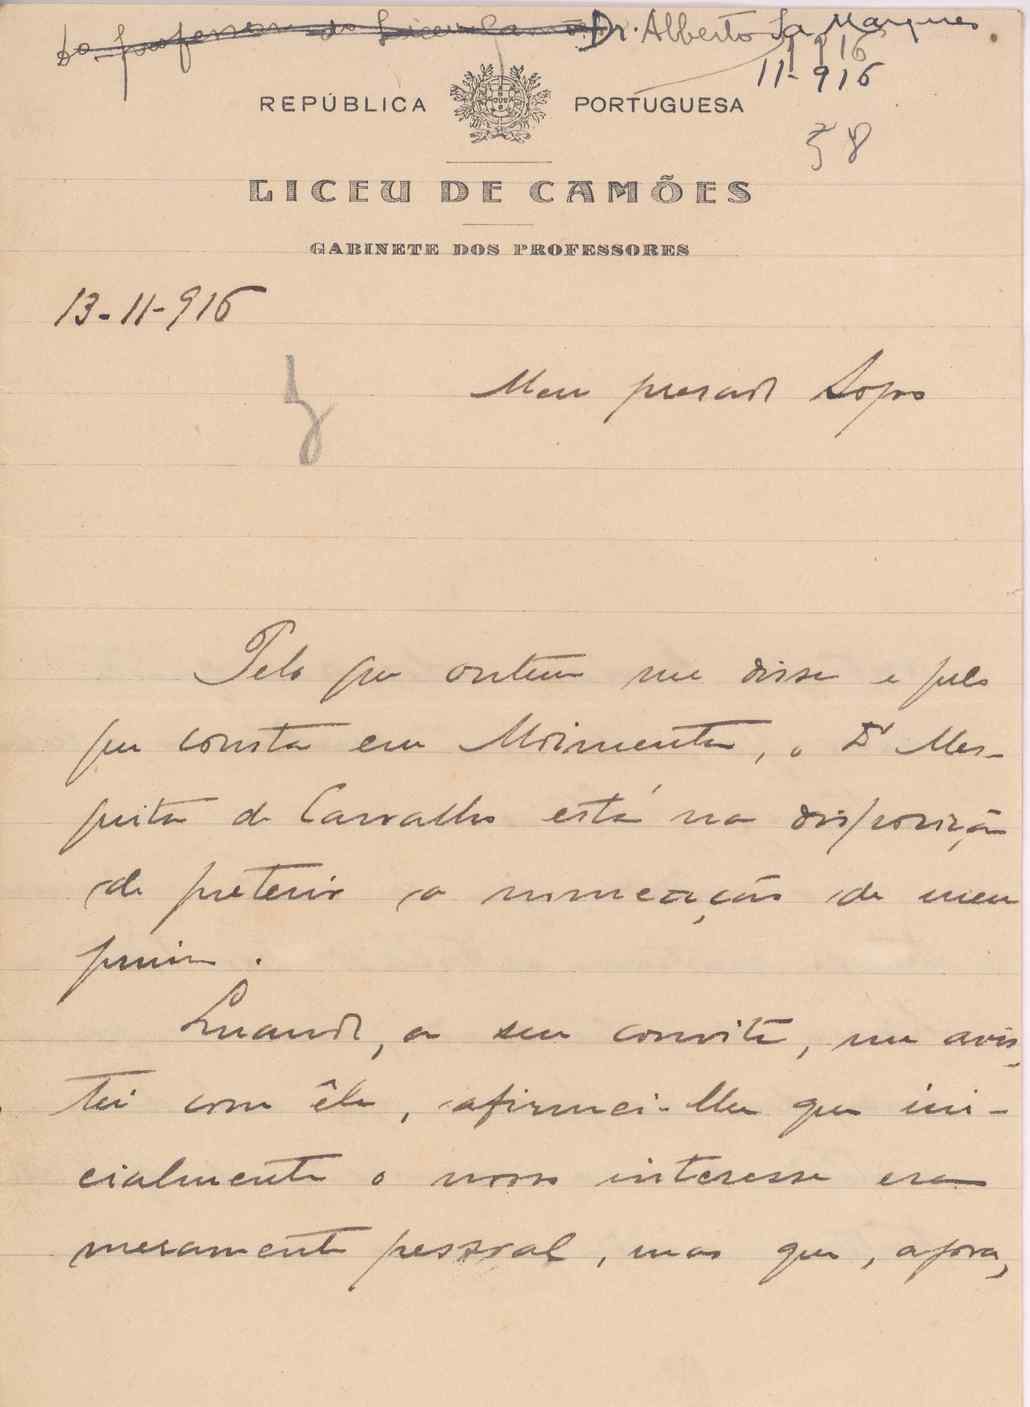 do professor do Liceu Camões Dr. Alberto Sá Marques
11-916
REPÚBLICA PORTUGUESA
58
LICEU DE CAMÕES
GABINETE DOS PROFESSORES
13-11-916
Meu presado Lopes
Pelo que ontem me disse e pelo
que consta em Moimenta, o Dr Mes-
quita de Carvalho está na disposição
de preterir a nomeação de meu
primo.
Quando, a seu convite, me avis-
tei com êle, afirmei-lhe que ini-
cialmente o nosso interesse era
meramente pessoal, mas que, agora,